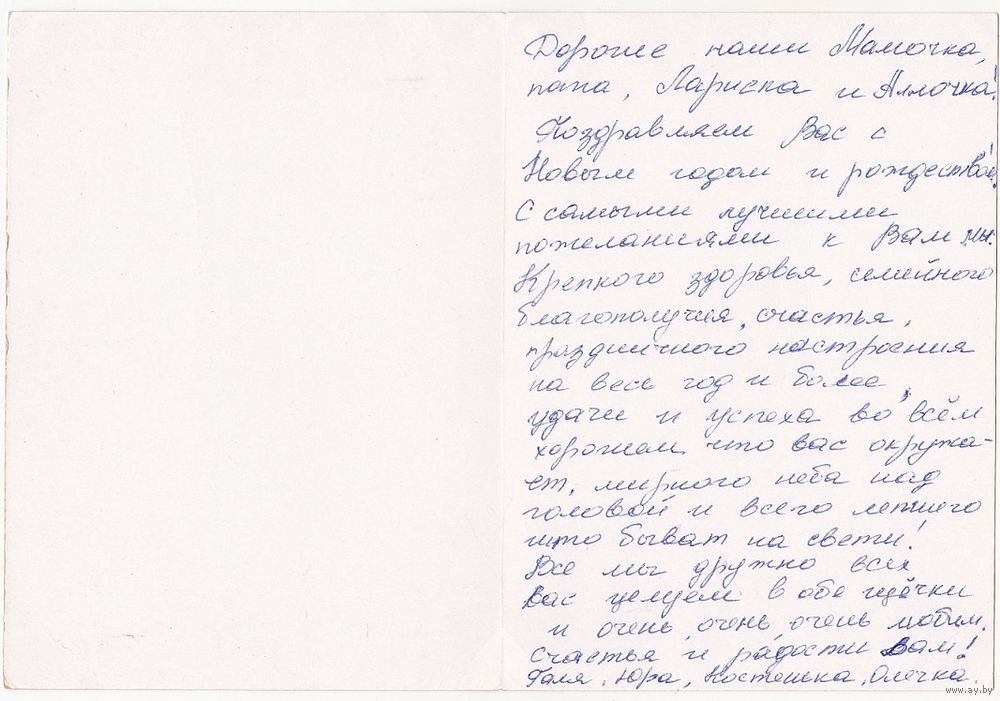 Дорогие наши Мамочка,
папа, Лариска и Аллочка!
Поздравляем Вас с
Новым годом и рождеством!
С самыми лучшими
пожеланиями к Вам мы.
Крепкого здоровья, семейного
благополучия, счастья,
праздничного настроения
на весь год и более,
удачи и успеха во всём
хорошем что вас окружа-
ет, мирного неба над
головой и всего летнего
што бывает на свети!
Все мы дружно всех
вас целуем в обе щёчки
и очень, очень, очень любим.
Счастья и радости Вам!
Галя, Юра, Костенька, Олечка.
www.ay.by